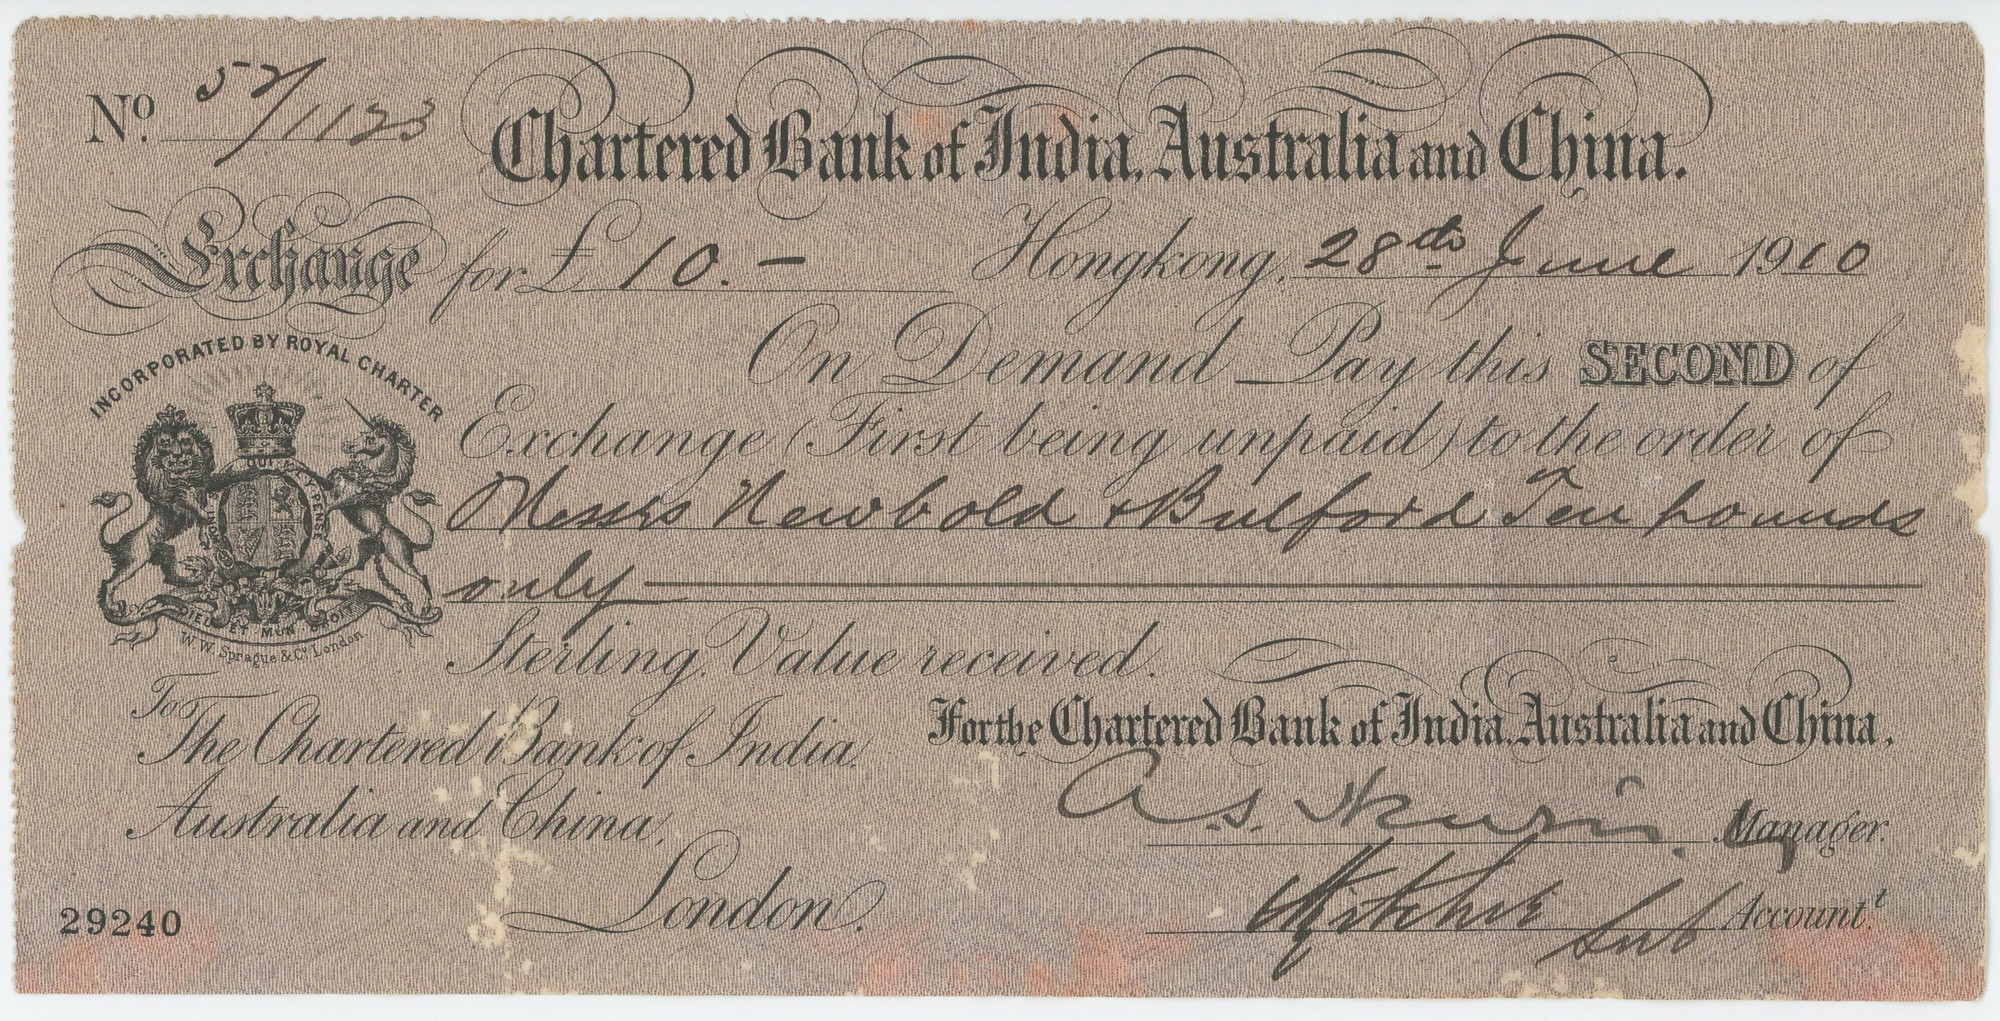 No. 52/1123
Chartered Bank of India, Australia and China.
Exchange for £ 10. – Hongkong, 28th June 1910
INCORPORATED BY ROYAL CHARTER
On Demand Pay this SECOND of
Exchange (First being unpaid) to the order of
Messrs Newbold & Bulford Ten pounds
only
DIEU ET MON DROIT
W. W. Sprague & Co. London
Sterling, Value received.
To
The Chartered Bank of India, For the Chartered Bank of India, Australia and China,
Australia and China,
A. S. Manager.
London. Sub Accountt.
29240